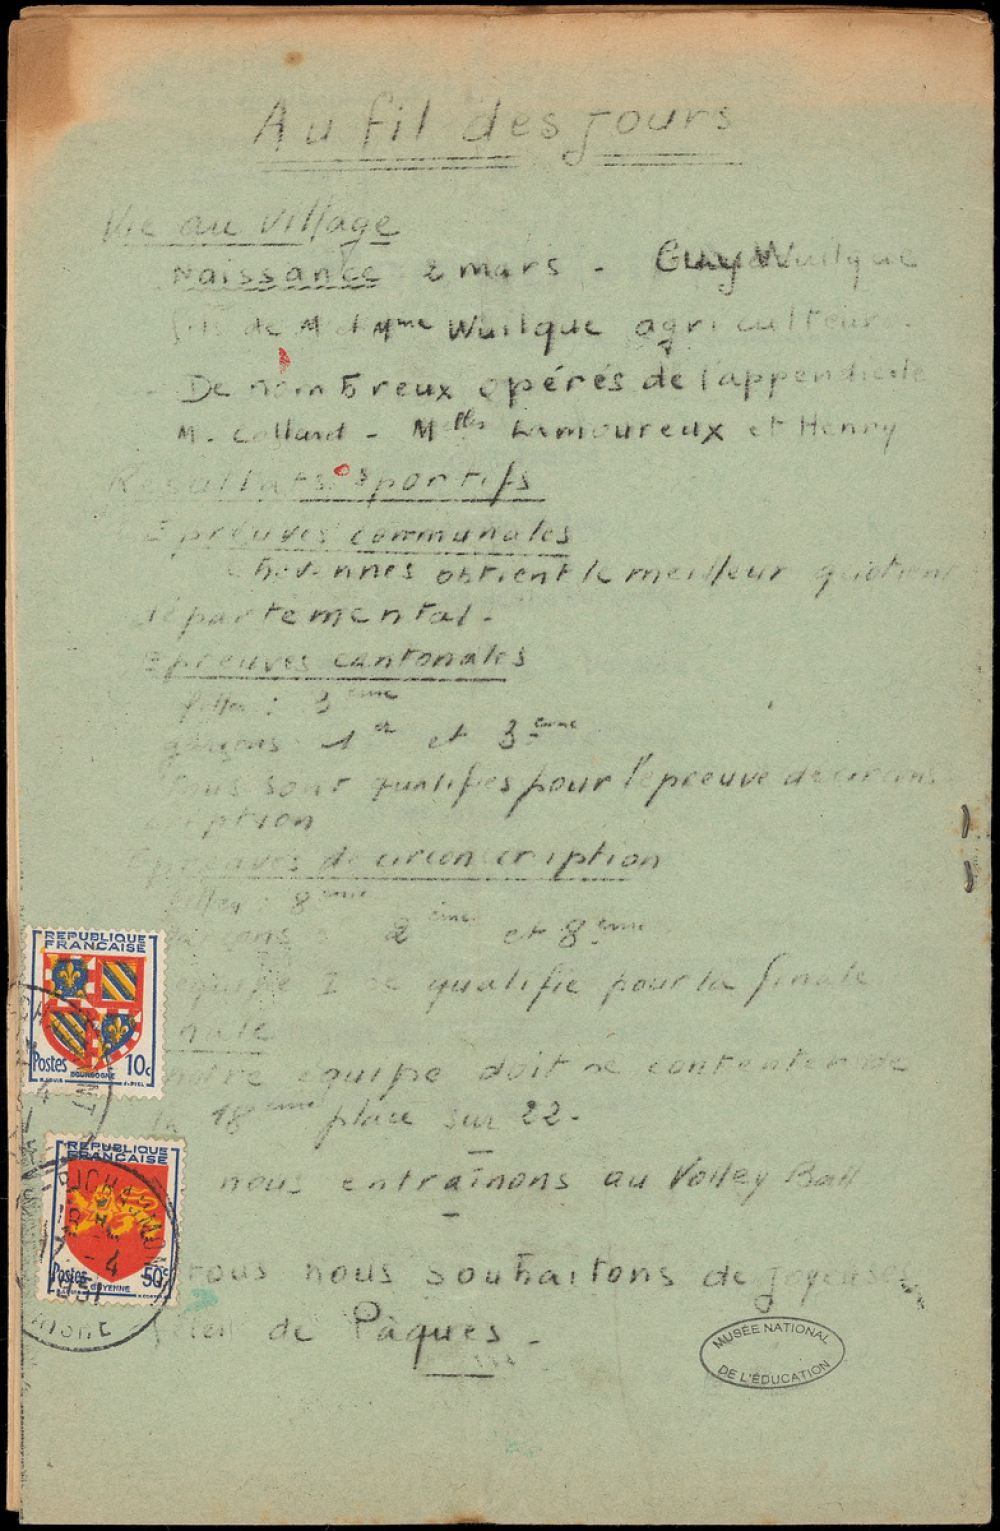 Au fil des jours
Vie au village
Naissance 2 mars - Guy Wuilque
fils de M et Mme Wuilque agriculteur.
De nombreux opérés de l'appendicite
M. Collard - Melles Lamoureux et Henry
Résultats sportifs
Epreuves communales
obtient le meilleur quotient
départemental.
Epreuves cantonales
filles : 3ème
garçons 1er et 3ème
Tous sont qualifiés pour l'épreuve de circons
cription
Epreuves de circonscription
filles : 8ème
garçons : 2ème et 8ème
équipe I se qualifie pour la finale
nale
notre équipe doit se contenter de
la 18ème place sur 22.
nous entraînons au Volley Ball
tous nous souhaitons de joyeuses
fêtes de Pâques -
REPUBLIQUE
FRANÇAISE
Postes 10c
BOURGOGNE
REPUBLIQUE
FRANÇAISE
Postes 50c
GUYENNE
MUSÉE NATIONAL
DE L'ÉDUCATION